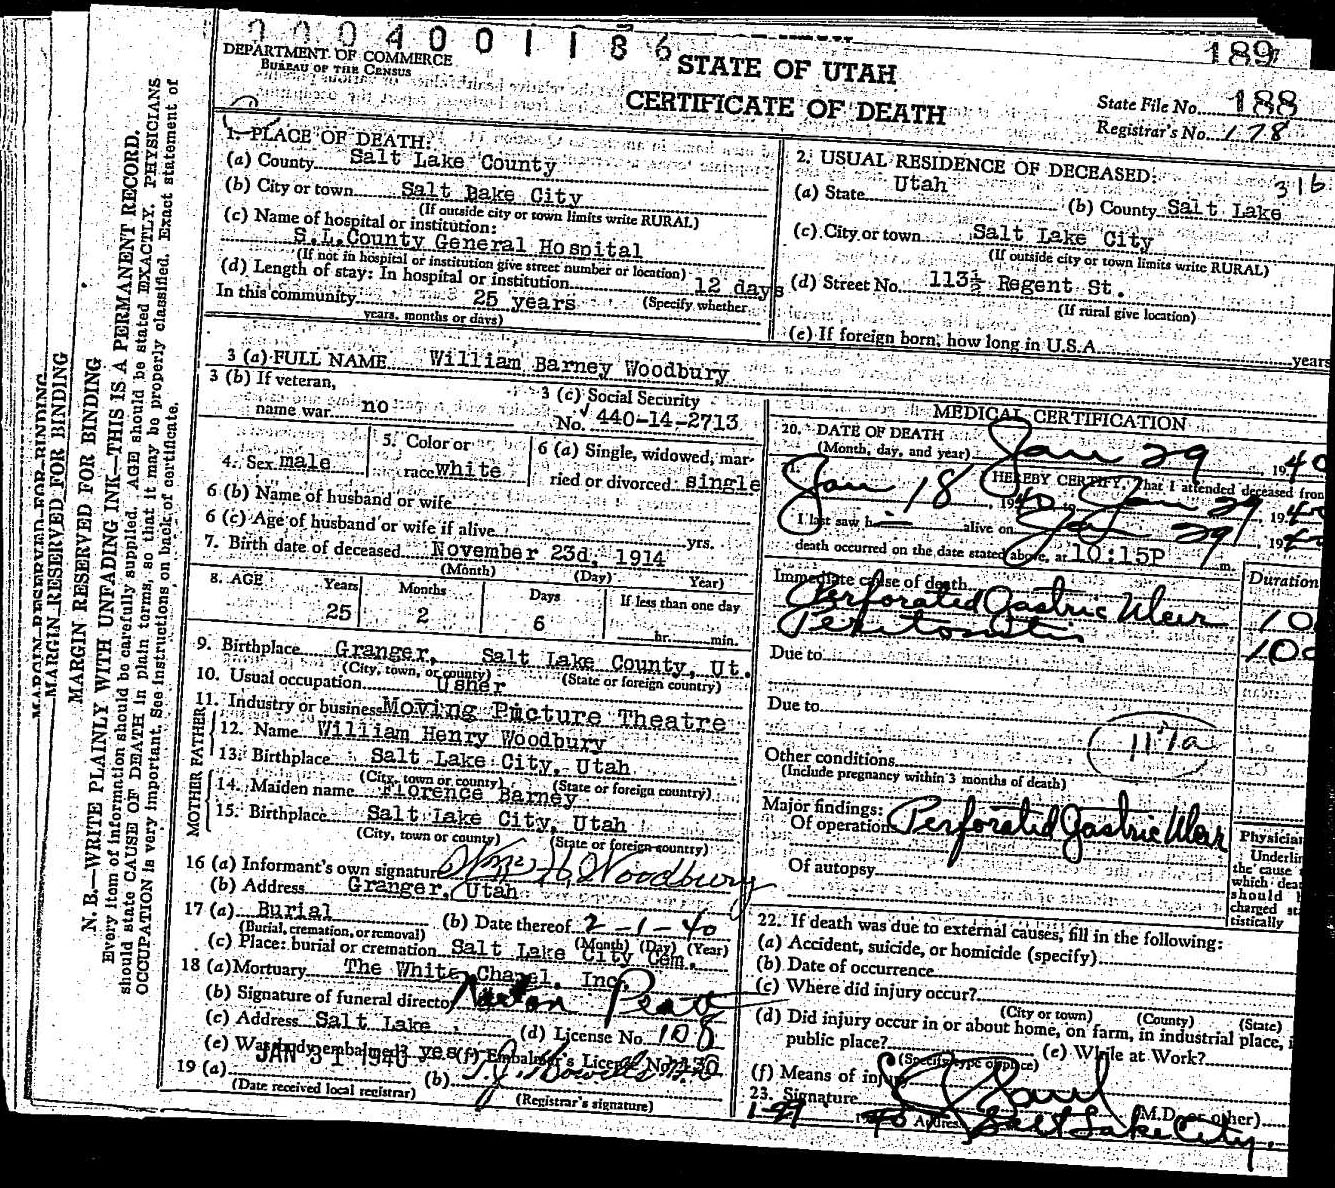 0004001186
189
DEPARTMENT OF COMMERCE
BUREAU OF THE CENSUS
STATE OF UTAH
CERTIFICATE OF DEATH
State File No. 188
Registrar's No. 178
1. PLACE OF DEATH:
(a) County Salt Lake County
(b) City or town Salt Bake City
(If outside city or town limits write RURAL)
(c) Name of hospital or institution:
S.L.County General Hospital
(If not in hospital or institution give street number or location)
(d) Length of stay: In hospital or institution 12 days
In this community 25 years (Specify whether
years, months or days)
2. USUAL RESIDENCE OF DECEASED:
316
(a) State Utah (b) County Salt Lake
(c) City or town Salt Lake City
(If outside city or town limits write RURAL)
(d) Street No. 113½ Regent St.
(If rural give location)
(e) If foreign born, how long in U.S.A. years
3 (a) FULL NAME William Barney Woodbury
3 (b) If veteran,
name war no
3 (c) Social Security
No. 440-14-2713
4. Sex male
5. Color or
race white
6 (a) Single, widowed, mar-
ried or divorced single
6 (b) Name of husband or wife
6 (c) Age of husband or wife if alive yrs.
7. Birth date of deceased November 23d, 1914
(Month) (Day) Year)
8. AGE Years Months Days If less than one day
25 2 6 hr. min.
9. Birthplace Granger, Salt Lake County, Ut.
(City, town, or county) (State or foreign country)
10. Usual occupation Usher
11. Industry or business Moving Picture Theatre
FATHER
12. Name William Henry Woodbury
13. Birthplace Salt Lake City, Utah
(City, town or county) (State or foreign country)
MOTHER
14. Maiden name Florence Barney
15. Birthplace Salt Lake City, Utah
(City, town or county) (State or foreign country)
16 (a) Informant's own signature Wm H Woodbury
(b) Address Granger, Utah
17 (a) Burial (b) Date thereof 2-1-40
(Burial, cremation, or removal) (Month) (Day) (Year)
(c) Place: burial or cremation Salt Lake City Cem.
18 (a) Mortuary The White Chapel, Inc.
(b) Signature of funeral director
(c) Address Salt Lake, (d) License No. 108
(e) Was body embalmed? yes (f) Embalmer's License No.
19 (a) JAN 31 1940 (b)
(Date received local registrar) (Registrar's signature)
MEDICAL CERTIFICATION
20. DATE OF DEATH
(Month, day, and year) Jan 29 1940
21. I HEREBY CERTIFY, That I attended deceased from
Jan 18, 1940, to Jan 29, 1940
I last saw h alive on Jan 29, 1940
death occurred on the date stated above, at 10:15P m.
Immediate cause of death Duration
Perforated Gastric Ulcer 10
Peritonitis 10
Due to
Due to
117a
Other conditions
(Include pregnancy within 3 months of death)
Major findings:
Of operations Perforated Gastric Ulcer
Of autopsy
Physician
Underlin
the cause
which dea
should b
charged sta
tistically
22. If death was due to external causes, fill in the following:
(a) Accident, suicide, or homicide (specify)
(b) Date of occurrence
(c) Where did injury occur?
(City or town) (County) (State)
(d) Did injury occur in or about home, on farm, in industrial place, i
public place? (e) While at Work?
(Specify type of place)
(f) Means of injury
23. Signature (M.D. or other)
1940 Address Salt Lake City.
MARGIN RESERVED FOR BINDING
MARGIN RESERVED FOR BINDING
MARGIN RESERVED FOR BINDING
N. B.—WRITE PLAINLY WITH UNFADING INK—THIS IS A PERMANENT RECORD.
Every item of information should be carefully supplied. AGE should be stated EXACTLY. PHYSICIANS
should state CAUSE OF DEATH in plain terms, so that it may be properly classified. Exact statement of
OCCUPATION is very important. See instructions on back of certificate.